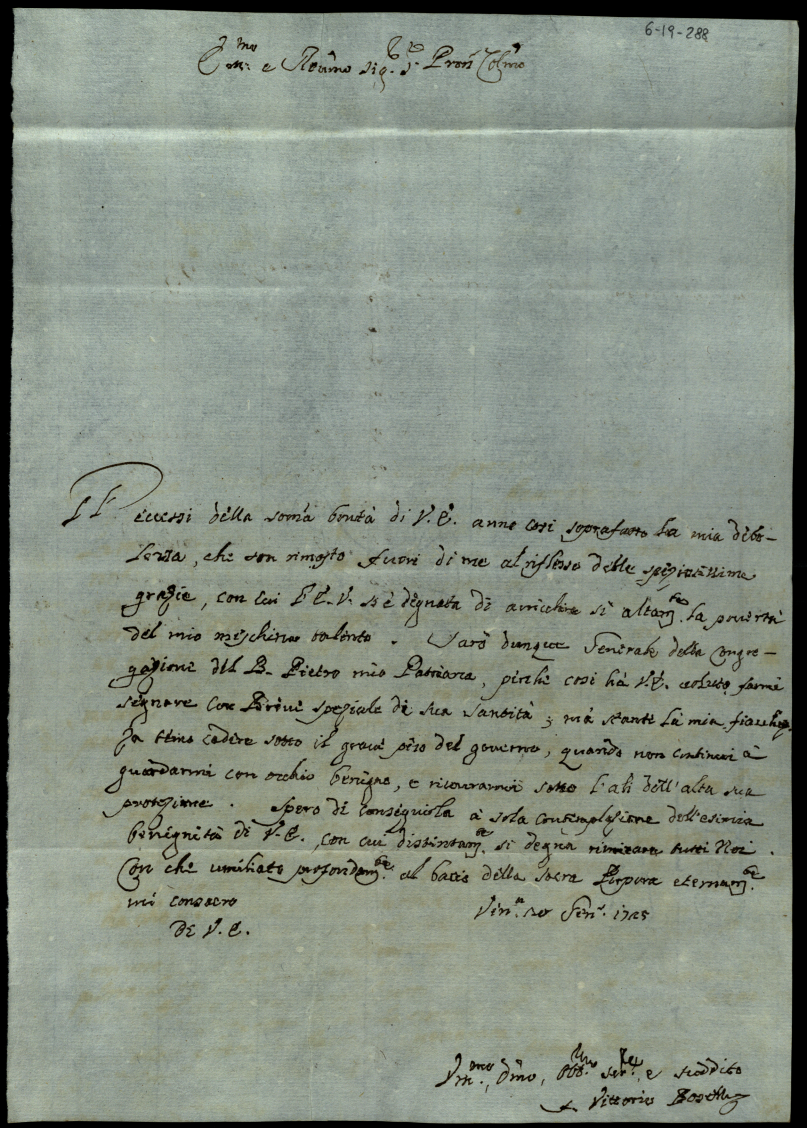 6-19-288
Em.mo e Reu.mo Sig.r S.r Pron Col.mo
Gl' eccessi della som̃a bontà di V.E. anno così soprafatto la mia debo-
lezza, che son rimasto fuori di me al riflesso delle speziosissime
grazie, con cui l'E.V. s'è degnata di aricchire sì altam.te la povertà
del mio meschino talento. Sarò dunque Generale della Congre-
gazione del B. Pietro mio Patriarca, perche così hà V.E. voluto farmi
segnare con Breve speziale di sua Santità; mà stante la mia fiacchez-
za temo cadere sotto il grave peso del governo, quando non continui à
guardarmi con occhio benigno, e ricourarmi sotto l'ali dell'alta sua
protezione. Spero di conseguirla à sola contemplazione dell'esimia
benignità di V.E., con cui distintam.te si degna rimirare tutti Noi.
Con che umiliato profondam.te al bacio della Sacra Porpora eternam.te
mi consacro
Di V.E. Ven.a 20 Gen.o 1725
Vm.mo, D.mo, Obb.mo Ser.re, e suddito
F. Vittorio